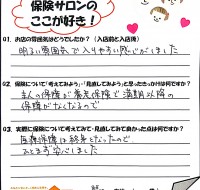 保険サロンの
ここが好き！
Q1. お店の雰囲気はどうでしたか？（入店前と入店後）
明るい雰囲気で入りやすい感じがしました
Q2. 保険について「考えてみよう」・「見直してみよう」と思ったきっかけは何ですか？
主人の保障が養老保険で満期以降の
保障がなくなるので
Q3. 実際に保険について考えてみて・見直してみて良かった点は何ですか？
医療保障は終身となったので、
ひとまず安心しました